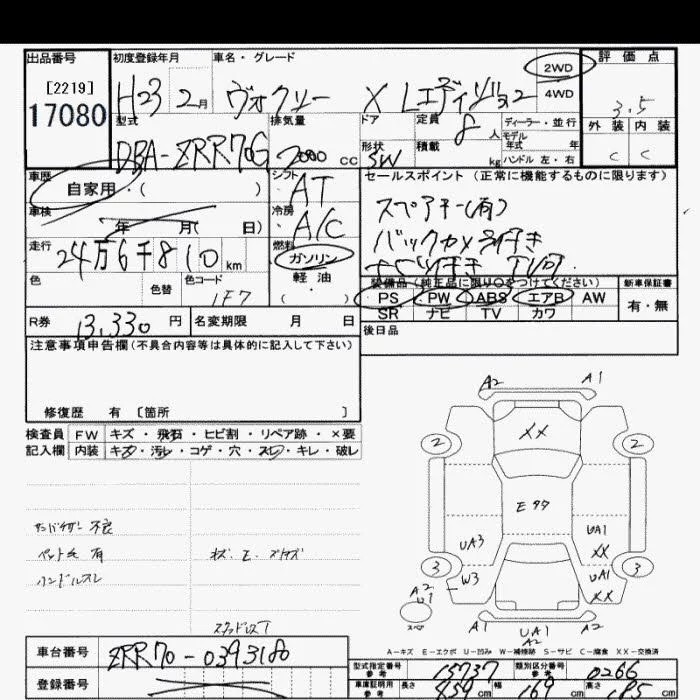 出品番号 初度登録年月 車名・グレード 2WD 評価点
[2219] 17080 H23 2月 ヴォクシー X Lエディション 4WD 3.5
型式 排気量 ドア 定員 ディーラー・並行 外装 内装
DBA-ZRR70G 2000 cc 8人 モデル年式 年 C C
形状 SW 積載 kg ハンドル 左・右
車歴 シフト セールスポイント (正常に機能するものに限ります)
自家用・( ) AT スペアキー(有)
車検 冷房 バックカメラ付き
年 月( 日) A/C ナビ付き TV可
走行 24万6千810km 燃料 ガソリン 装備品 (純正品に限り○をつけてください) 新車保証書
色 色替 色コード 1F7 軽油 PS PW ABS エアB AW 有・無
・( ) SR ナビ TV カワ
R券 13,330円 名変期限 月 日 後日品
注意事項申告欄(不具合内容等は具体的に記入して下さい)
修復歴 有 [箇所 ]
検査員 FW キズ・飛石・ヒビ割・リペア跡・×要
記入欄 内装 キズ・汚レ・コゲ・穴・スレ・キレ・破レ
A2 A1
2 XX 2
E77
サンバイザー不良 UA3 UA1
ペット毛 有 XX
ハンドルスレ 3 W3 UA1 3
A2 U1 XX
スペア
スタッドレスT A1 UA1 A2 A2
A-キズ E-エクボ U-凹み W-補修跡 S-サビ C-腐食 XX-交換済
車台番号 ZRR70-0393180 型式指定番号 参考 15737 類別区分番号 参考 0266
登録番号 車庫証明用 参考 長さ 459cm 幅 169cm 高さ cm